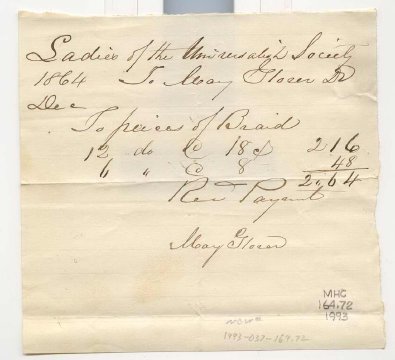 Ladies of the Universalist Society
1864 To May Glover Dr
Dec
To peices of Braid
12 do @ 18 ¢ 2 16
6 " @ 8 48
2.64
Rec Payment
May Glover
MHC
164.72
1993
1993-037-164.72